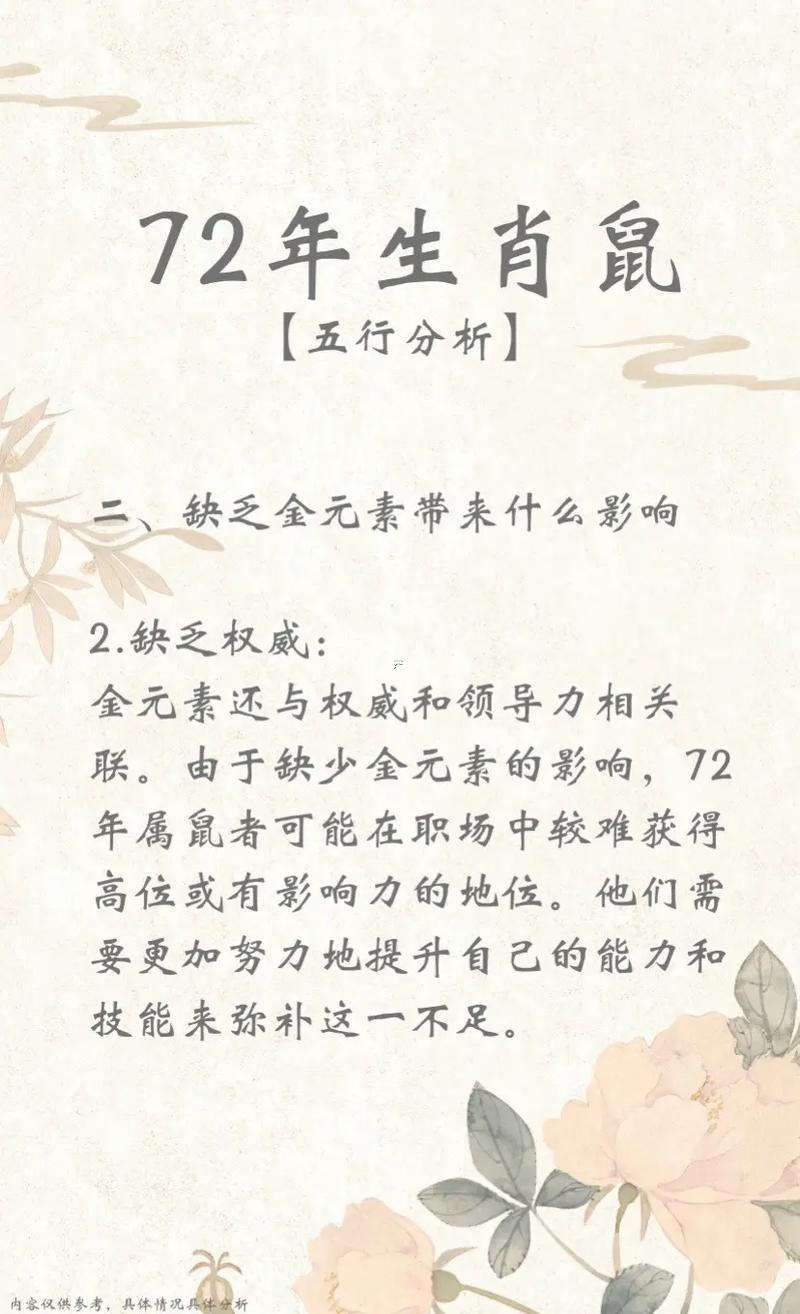 72年生肖鼠
【五行分析】
二、缺乏金元素带来什么影响
2.缺乏权威：
金元素还与权威和领导力相关
联。由于缺少金元素的影响，72
年属鼠者可能在职场中较难获得
高位或有影响力的地位。他们需
要更加努力地提升自己的能力和
技能来弥补这一不足。
内容仅供参考，具体情况具体分析